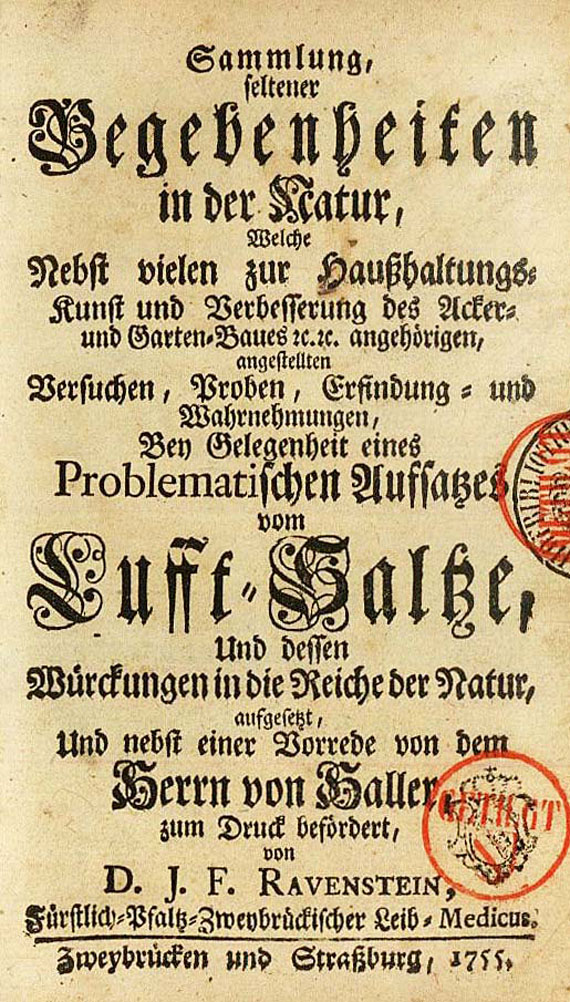 Sammlung,
seltener
Begebenheiten
in der Natur,
Welche
Nebst vielen zur Haußhaltungs-
Kunst und Verbesserung des Acker-
und Garten-Baues ꝛc.ꝛc. angehörigen,
angestellten
Versuchen, Proben, Erfindung- und
Wahrnehmungen,
Bey Gelegenheit eines
Problematischen Auffsatzes
vom
Lufft-Saltze,
Und dessen
Würckungen in die Reiche der Natur,
aufgesetzt,
Und nebst einer Vorrede von dem
Herrn von Haller,
zum Druck befördert,
von
D. J. F. RAVENSTEIN,
Fürstlich-Pfaltz-Zweybrückischer Leib-Medicus.
Zweybrücken und Straßburg, 1755.
GETILGT